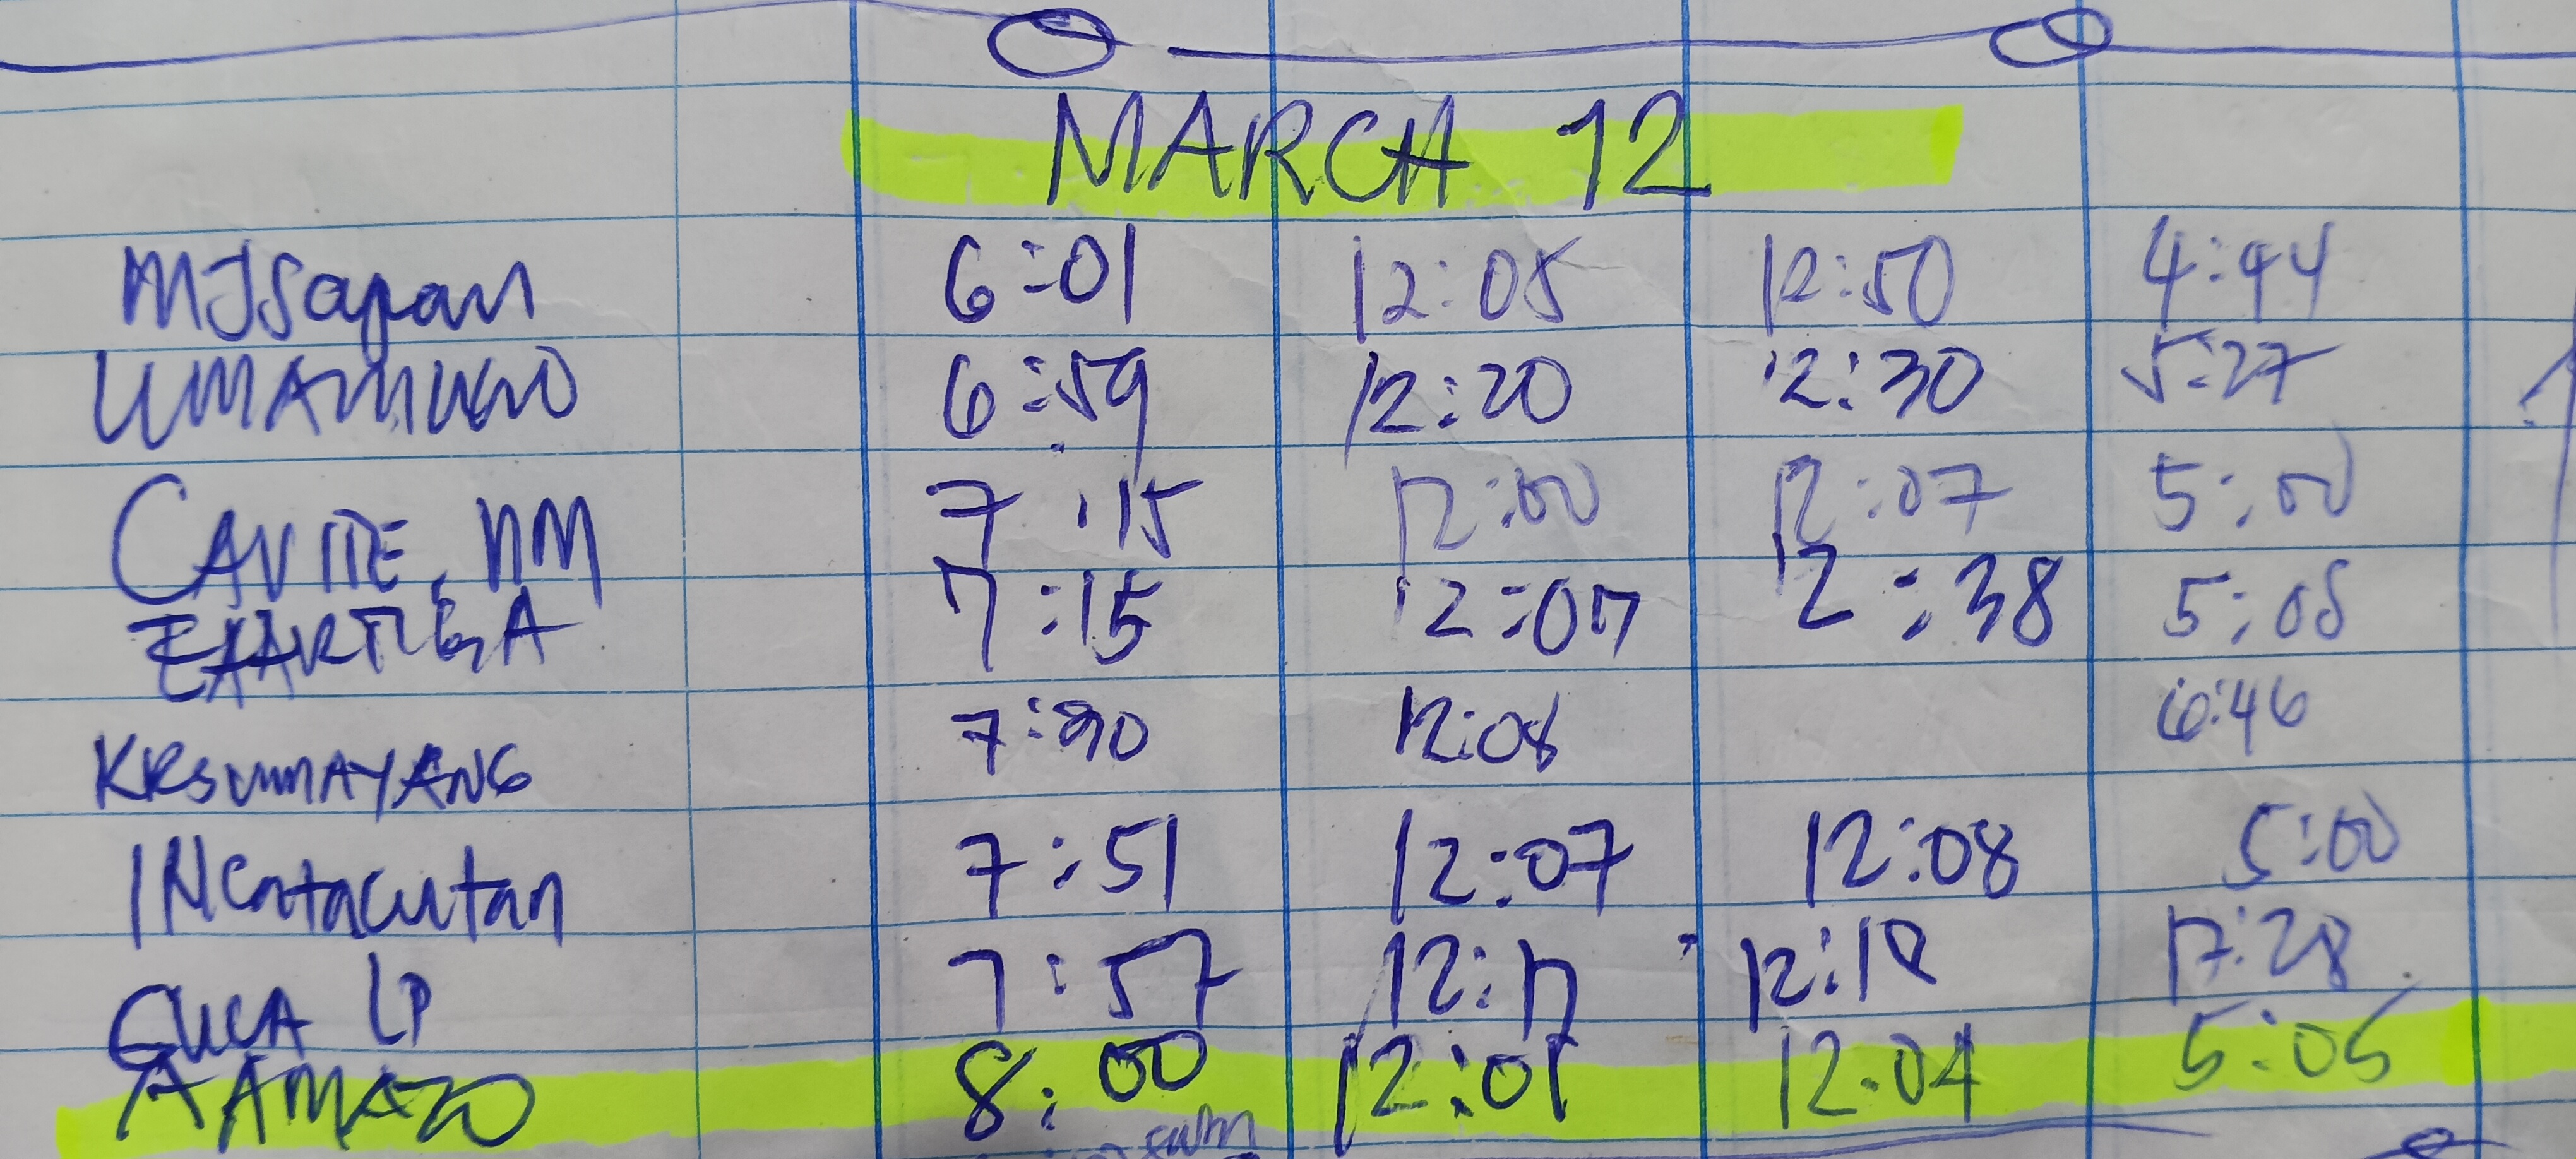 MARCH 12
MJSapan 6:01 12:05 12:50 4:44
6:59 12:20 12:30 5:27
CAVITE, NM 7:15 12:00 12:07 5:00
7:15 12:07 12:38 5:08
KRSUMAYANG 7:30 12:08 6:46
INCatacutan 7:51 12:07 12:08 5:00
LP 7:57 12:17 12:18 17:28
AAMAZO 8:00 12:01 12:04 5:05